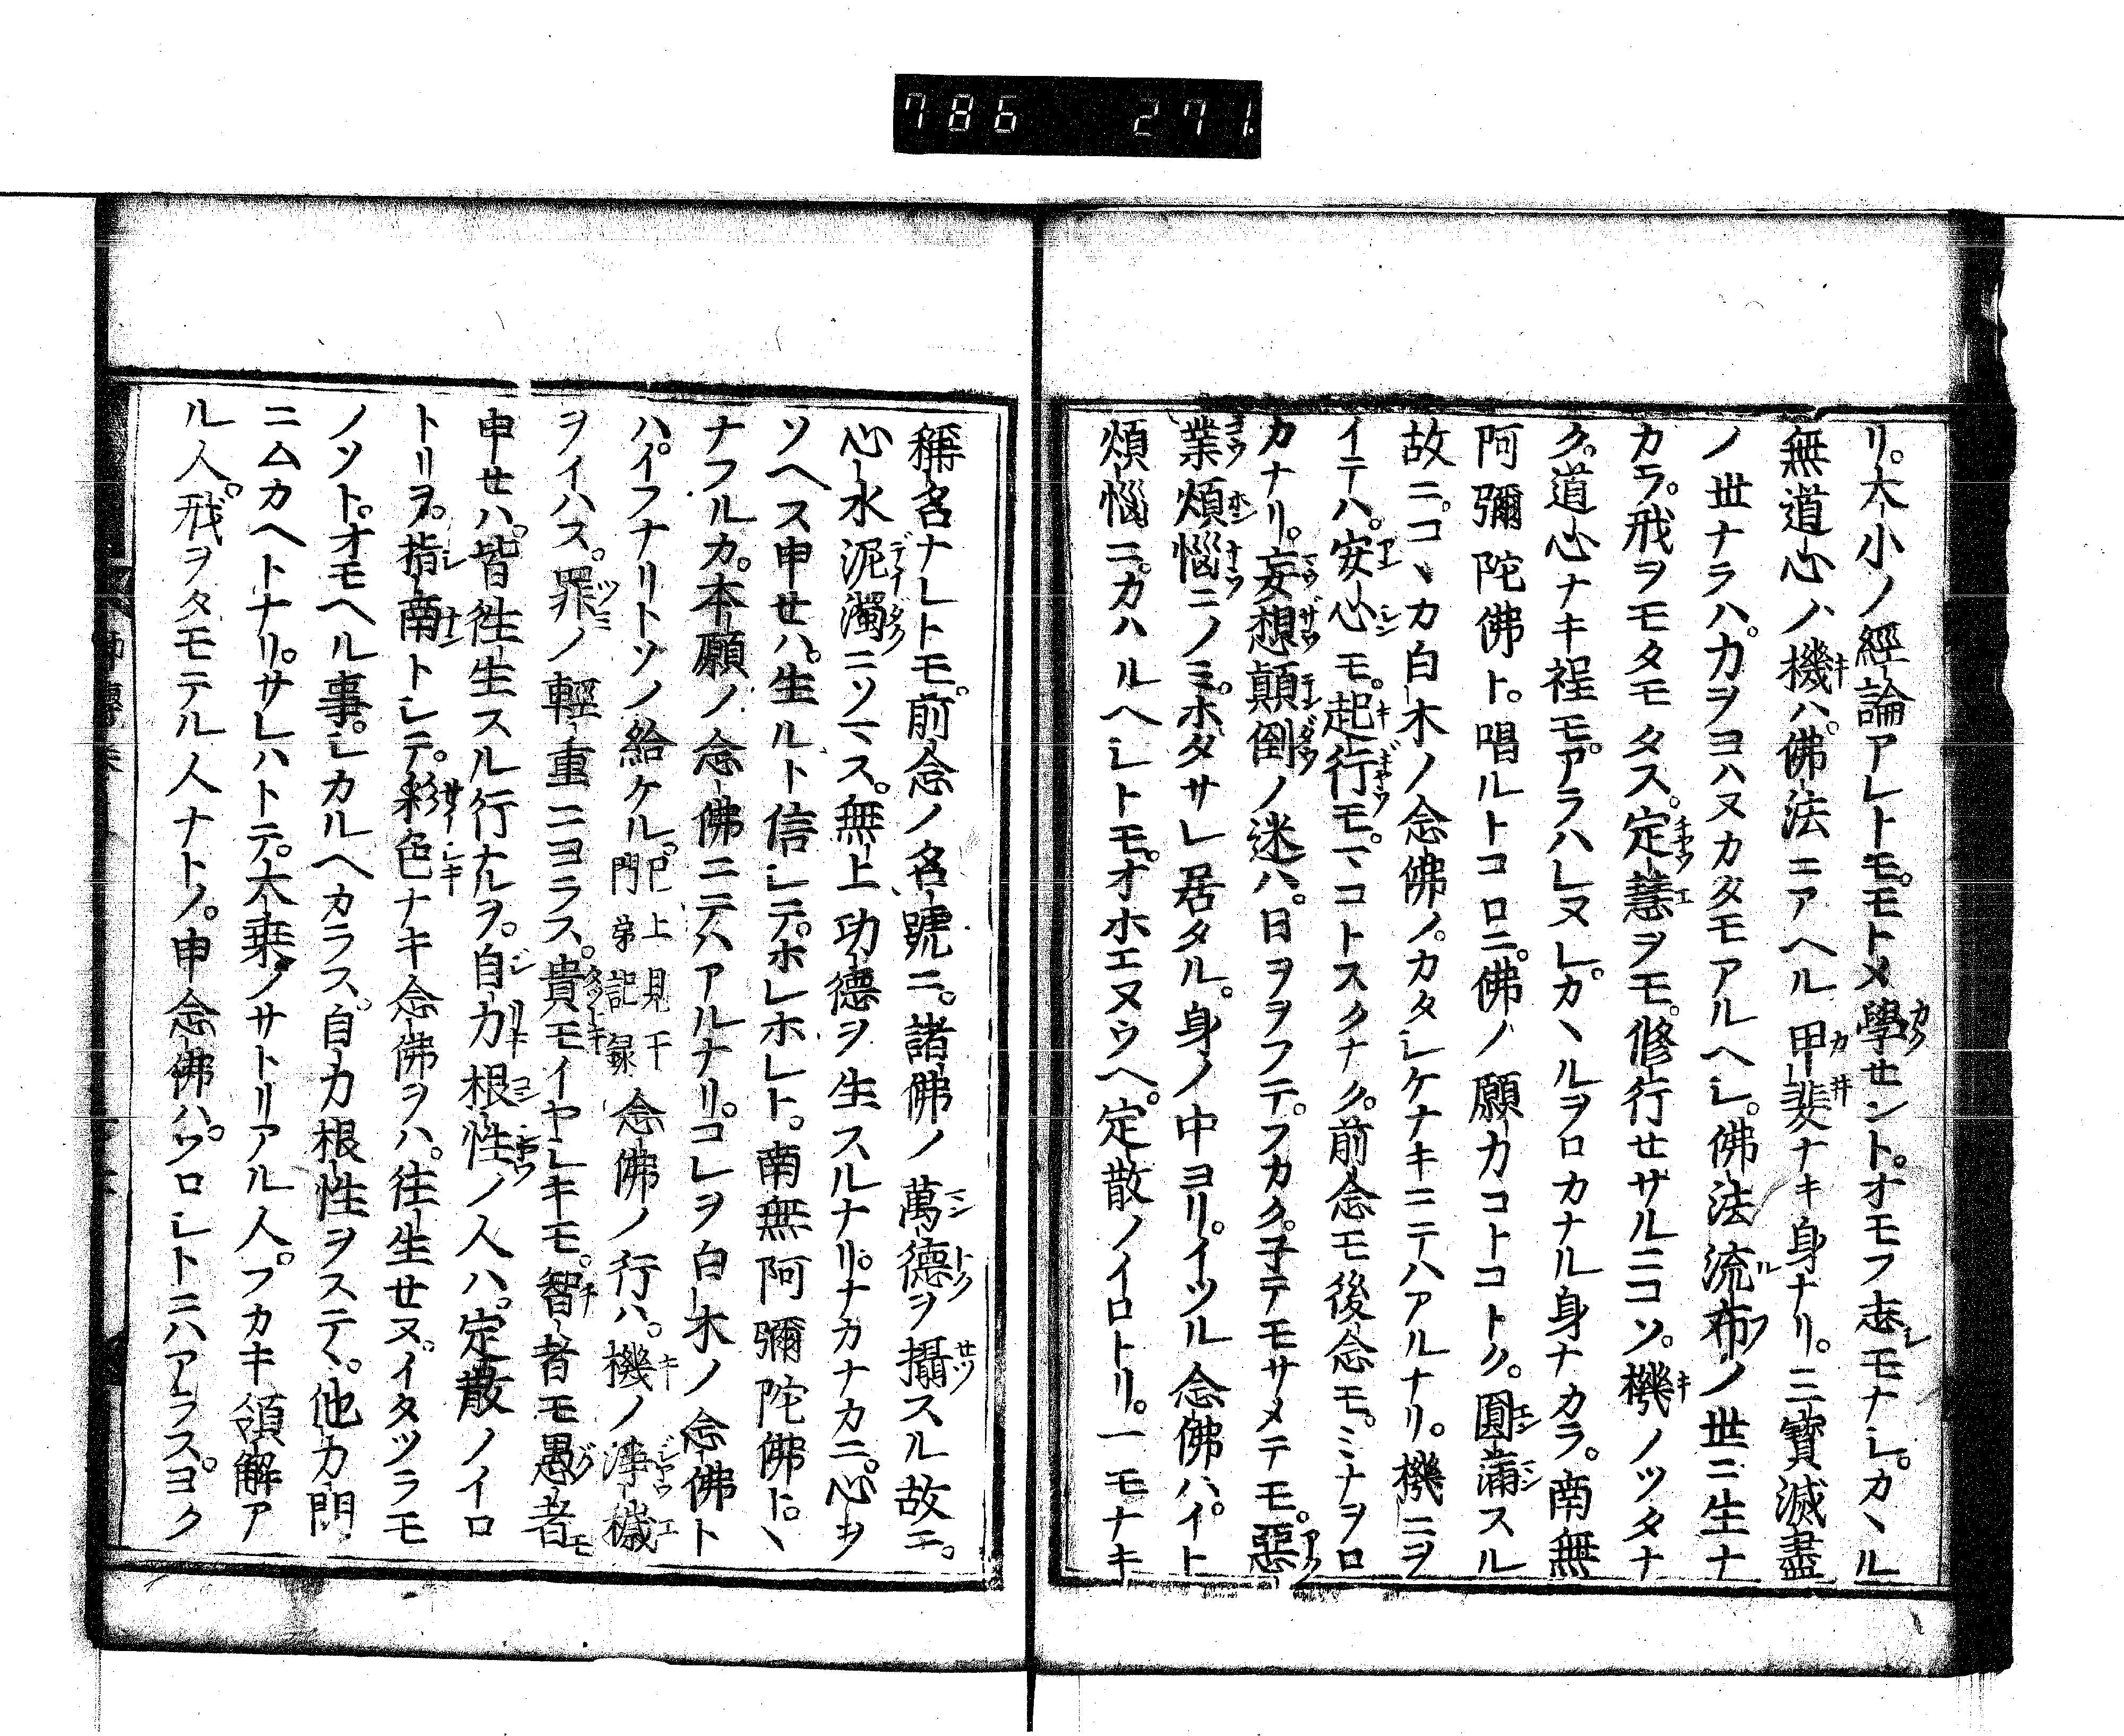 786 271.
リ。大小ノ經論アレトモ。モトメ學セント。オモフ志モナシ。カヽル
無道心ノ機ハ。佛法ニアヘル甲斐ナキ身ナリ。三寳滅盡
ノ世ナラハ。力ヲヨハヌカタモアルヘシ。佛法流布ノ世ニ生ナ
カラ。戒ヲモタモタス。定慧ヲモ。修行セサルニコソ。機ノツタナ
ク。道心ナキ程モ。アラハレヌレ。カヽルヲロカナル身ナカラ。南無
阿彌陀佛ト。唱ルトコロニ。佛ノ願力コトコトク。圓滿スル
故ニ。コヽカ白木ノ念佛ノ。カタシケナキニテハアルナリ。機ニヲ
イテハ。安心モ。起行モ。マコトスクナク。前念モ後念モ。ミナヲロ
カナリ。妄想顛倒ノ迷ハ。日ヲヲフテ。フカク。子テモサメテモ。惡
業煩惱ニノミ。ホタサレ居タル。身ノ中ヨリ。イツル念佛ハ。イト
煩惱ニ。カハルヘシトモ。オホエヌウヘ。定散ノイロトリ。一モナキ
稱名ナレトモ。前念ノ名號ニ。諸佛ノ萬德ヲ攝スル故ニ。
心水泥濁ニソマス。無上功德ヲ生スルナリ。ナカナカニ。心ヲ
ソヘス申セハ。生ルト信シテ。ホレホレト。南無阿彌陀佛ト。ヽ
ナフルカ。本願ノ念佛ニテハアルナリ。コレヲ白木ノ念佛ト
ハ。イフナリトソノ給ケル。已上見于門弟記録念佛ノ行ハ。機ノ淨穢
ヲイハス。罪ノ輕重ニヨラス。貴モイヤシキモ。智者モ愚者モ
申セハ。皆往生スル行ナルヲ。自力根性ノ人ハ。定散ノイロ
トリヲ。指南トシテ。彩色ナキ念佛ヲハ。往生セヌ。イタツラモ
ノソト。オモヘル事。シカルヘカラス。自力根性ヲステヽ。他力門
ニムカヘトナリ。サレハトテ。大乗ノサトリアル人。フカキ領解ア
ル人。戒ヲタモテル人ナトノ。申念佛ハ。ワロシトニハアラス。ヨク